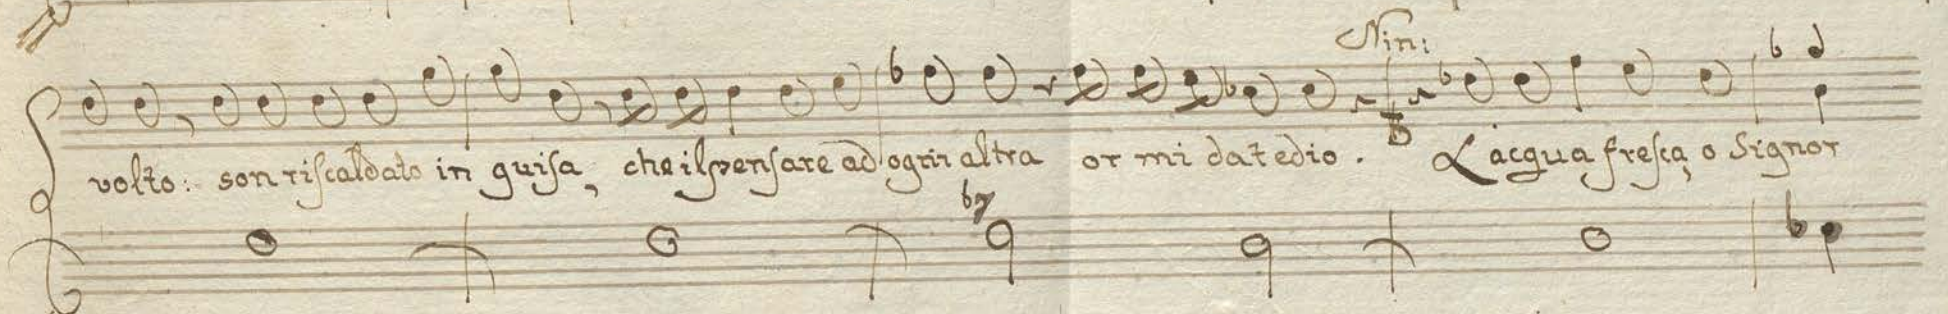 Nin:
volto: son riscaldato in guisa, che il pensare ad ogni altra or mi da tedio. L'acqua fresca, o Signor
b7